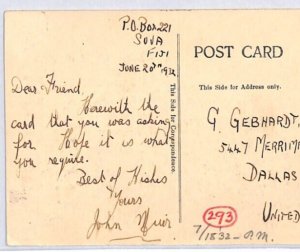 P.O. Box 221
SUVA
FIJI
JUNE 20TH 1932
Dear Friend,
Herewith the
card that you was asking
for. Hope it is what
you require.
Best of Wishes
Yours
John Muir
This Side for Correspondence.
POST CARD
This Side for Address only.
G. GEBHARDT,
5447 MERRIM
DALLAS
UNITE
293
7/1832 - P.M.